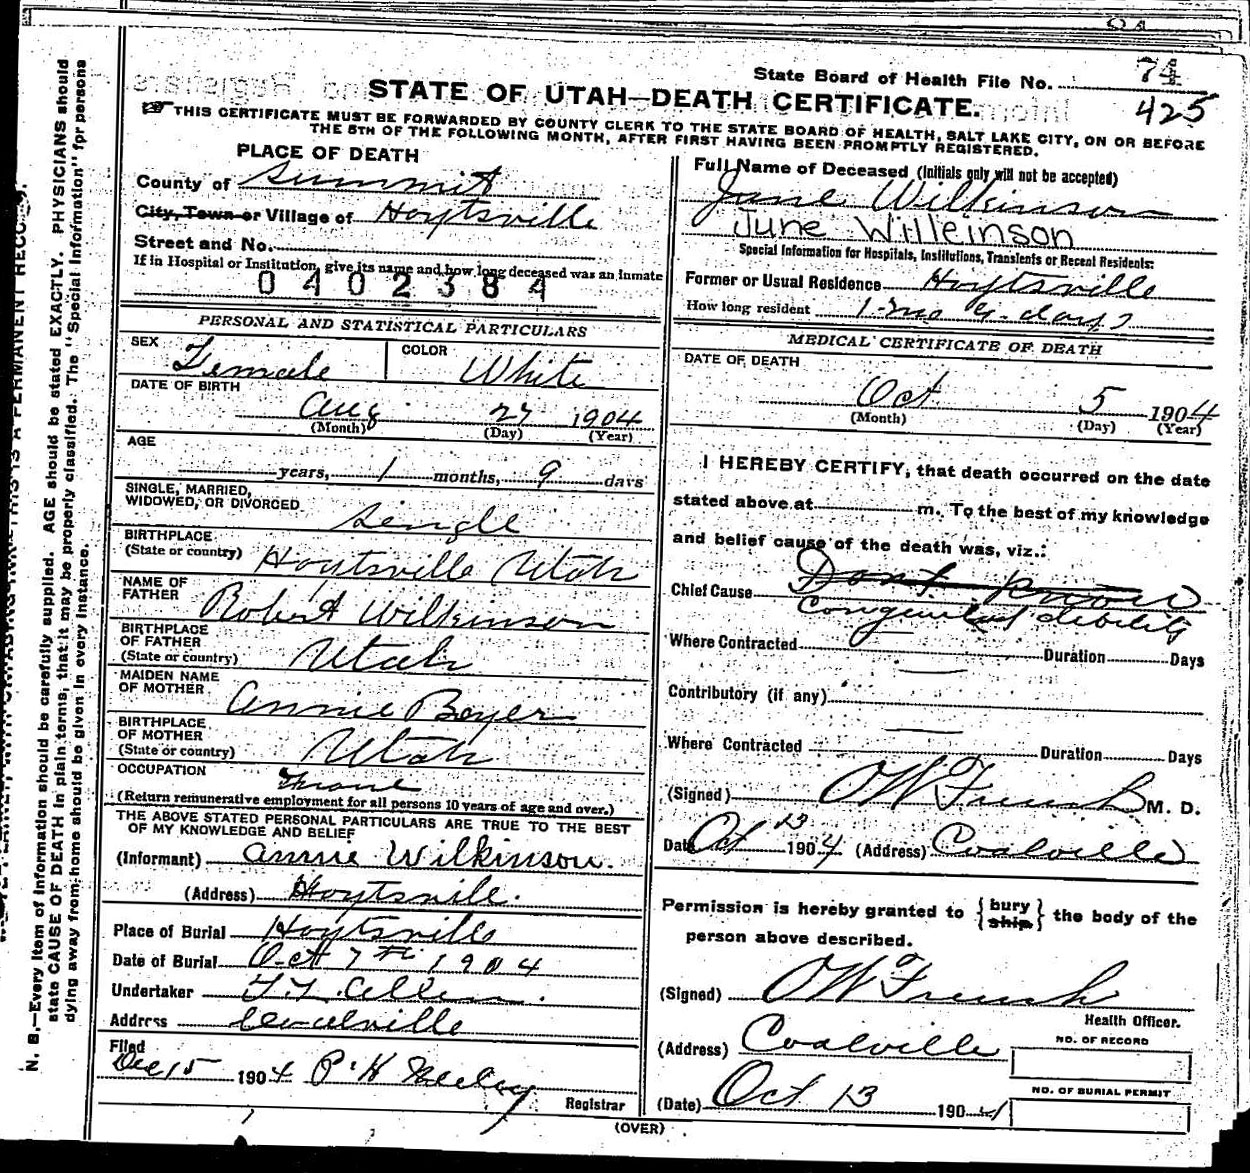 State Board of Health File No. 74
425
STATE OF UTAH—DEATH CERTIFICATE.
THIS CERTIFICATE MUST BE FORWARDED BY COUNTY CLERK TO THE STATE BOARD OF HEALTH, SALT LAKE CITY, ON OR BEFORE
THE 5TH OF THE FOLLOWING MONTH, AFTER FIRST HAVING BEEN PROMPTLY REGISTERED.
PLACE OF DEATH
County of Summit
City, Town or Village of Hoytsville
Street and No.
If in Hospital or Institution, give its name and how long deceased was an inmate
0402384
PERSONAL AND STATISTICAL PARTICULARS
SEX Female COLOR White
DATE OF BIRTH
Aug 27 1904
(Month) (Day) (Year)
AGE
years, 1 months, 9 days
SINGLE, MARRIED,
WIDOWED, OR DIVORCED Single
BIRTHPLACE
(State or country) Hoytsville Utah
NAME OF
FATHER Robert Wilkinson
BIRTHPLACE
OF FATHER
(State or country) Utah
MAIDEN NAME
OF MOTHER Annie Boyer
BIRTHPLACE
OF MOTHER
(State or country) Utah
OCCUPATION None
(Return remunerative employment for all persons 10 years of age and over.)
THE ABOVE STATED PERSONAL PARTICULARS ARE TRUE TO THE BEST
OF MY KNOWLEDGE AND BELIEF
(Informant) Annie Wilkinson.
(Address) Hoytsville.
Place of Burial Hoytsville
Date of Burial Oct 7th 1904
Undertaker
Address Coalville
Filed
Dec 15 1904 P. H. Neeley
Registrar
Full Name of Deceased (Initials only will not be accepted)
June Wilkinson
June Wilkinson
Special Information for Hospitals, Institutions, Transients or Recent Residents:
Former or Usual Residence Hoytsville
How long resident 1 mo 9 days
MEDICAL CERTIFICATE OF DEATH
DATE OF DEATH
Oct 5 1904
(Month) (Day) (Year)
I HEREBY CERTIFY, that death occurred on the date
stated above at m. To the best of my knowledge
and belief cause of the death was, viz.:
Chief Cause Dont know
Congenital debility
Where Contracted Duration Days
Contributory (if any)
Where Contracted Duration Days
(Signed) OW French M. D.
Date Oct 13 1904 (Address) Coalville
Permission is hereby granted to { bury
ship } the body of the
person above described.
(Signed) OW French
Health Officer.
(Address) Coalville
NO. OF RECORD
NO. OF BURIAL PERMIT
(Date) Oct 13 1904
(OVER)
N. B.—Every item of information should be carefully supplied. AGE should be stated EXACTLY. PHYSICIANS should
state CAUSE OF DEATH in plain terms, that it may be properly classified. The "Special Information" for persons
dying away from home should be given in every instance.